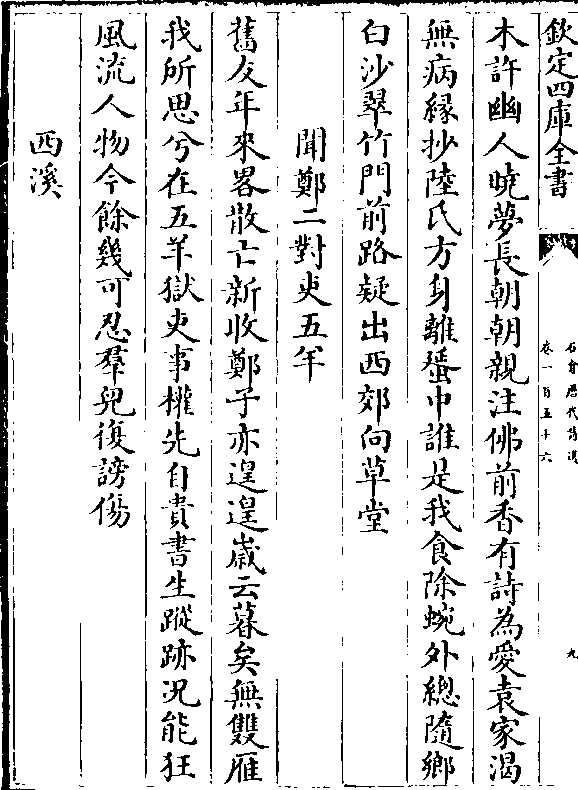 欽定四庫全書
石倉歴代詩選
卷一百五十六
九
木許幽人曉夢長朝朝親注佛前香有詩為愛袁家渴
無病緣抄陸氏方身離蜑中誰是我食除蜿外總隨鄉
白沙翠竹門前路疑出西郊向草堂
聞鄭二對吏五羊
舊友年來畧散亡新收鄭子亦遑遑嵗云暮矣無雙雁
我所思兮在五羊獄吏事權先自貴書生蹤跡况能狂
風流人物今餘幾可忍羣兒復謗傷
西溪